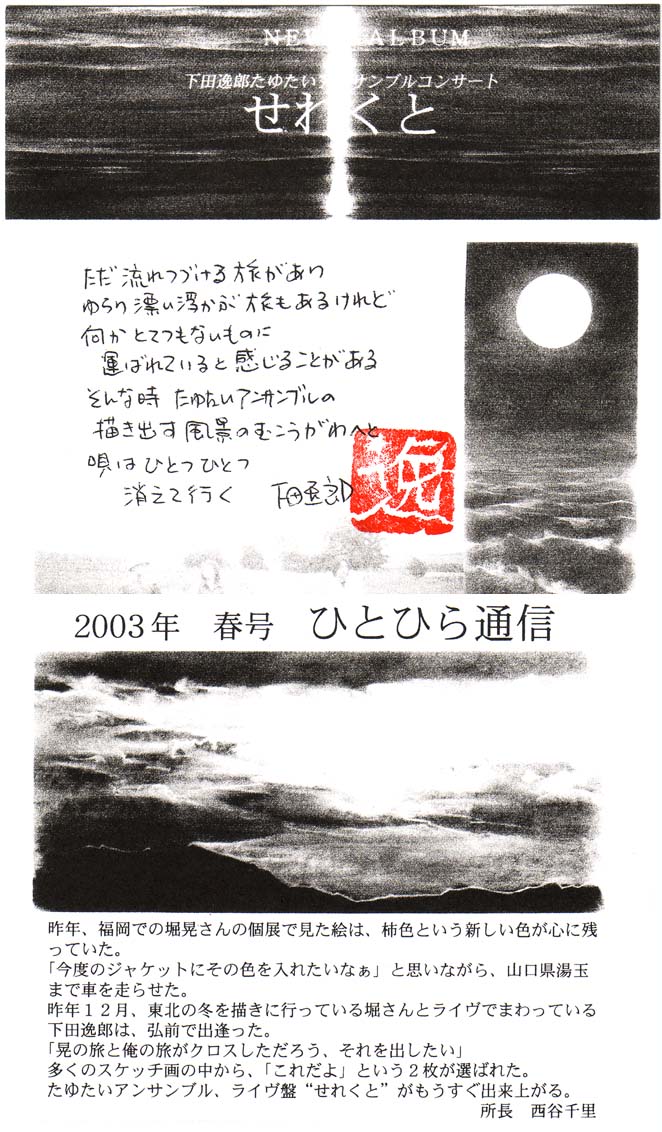 NEW ALBUM
下田逸郎たゆたいアンサンブルコンサート
せれくと
ただ流れつづける旅があり
ゆらり漂い浮かぶ旅もあるけれど
何かとてつもないものに
運ばれていると感じることがある
そんな時 たゆたいアンサンブルの
描き出す風景のむこうがわへと
唄はひとつひとつ
消えて行く 下田逸郎
2003年 春号 ひとひら通信
昨年、福岡での堀晃さんの個展で見た絵は、柿色という新しい色が心に残
っていた。
「今度のジャケットにその色を入れたいなぁ」と思いながら、山口県湯玉
まで車を走らせた。
昨年１２月、東北の冬を描きに行っている堀さんとライヴでまわっている
下田逸郎は、弘前で出逢った。
「晃の旅と俺の旅がクロスしただろう、それを出したい」
多くのスケッチ画の中から、「これだよ」という２枚が選ばれた。
たゆたいアンサンブル、ライヴ盤“せれくと”がもうすぐ出来上がる。
所長 西谷千里